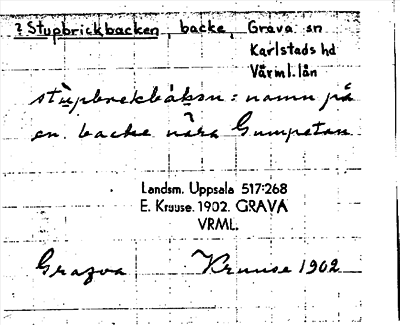 ? Stupbrickbacken, backe, Grava sn
Karlstads hd
Värml. län
stùpbrekbákan: namn på
en backe nära Gumpetan
Landsm. Uppsala 517:268
E. Kruuse. 1902. GRAVA
VRML.
Grava Kruuse 1902